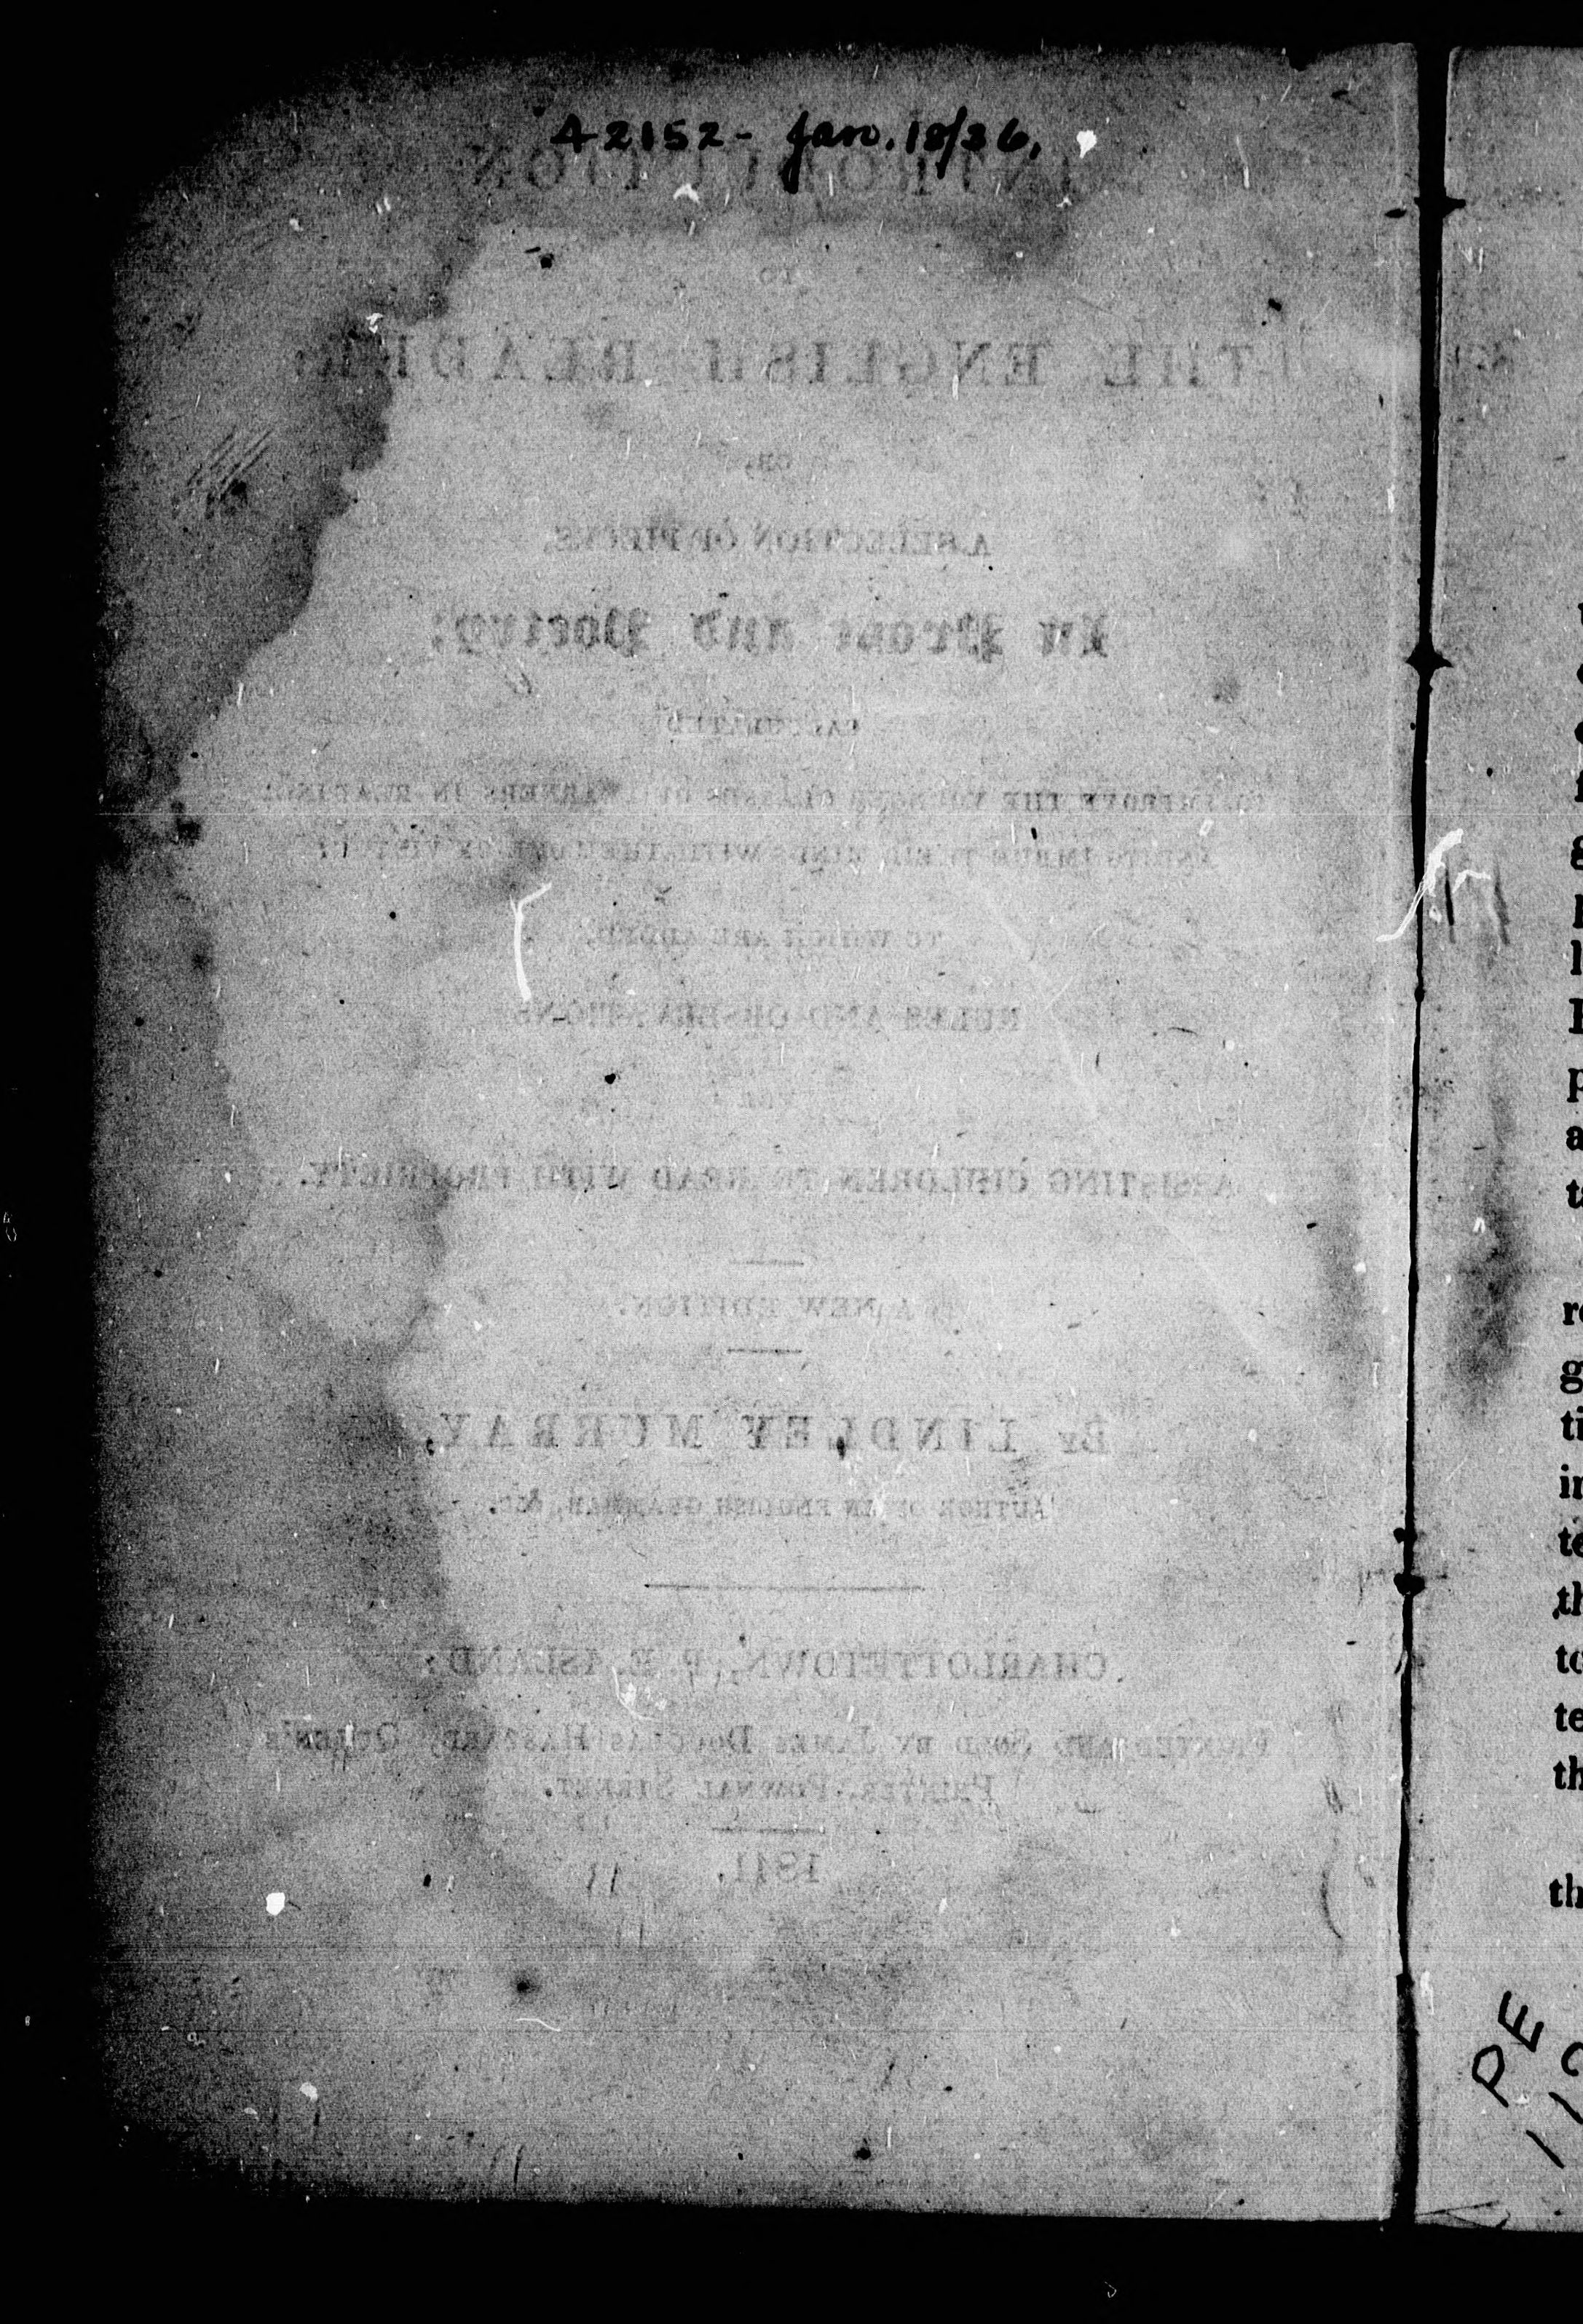 42152 - Jan. 18/36.
INTRODUCTION
TO
THE ENGLISH READER:
OR,
A SELECTION OF PIECES,
In Prose and Poetry;
CALCULATED
TO IMPROVE THE YOUNGER CLASSES OF LEARNERS IN READING;
AND TO IMBUE THEIR MINDS WITH THE LOVE OF VIRTUE.
TO WHICH ARE ADDED,
RULES AND OBSERVATIONS
FOR
ASSISTING CHILDREN TO READ WITH PROPRIETY.
A NEW EDITION.
By LINDLEY MURRAY,
AUTHOR OF AN ENGLISH GRAMMAR, &c.
CHARLOTTETOWN, P. E. ISLAND:
PRINTED AND SOLD BY JAMES DOUGLAS HASZARD, QUEEN'S
PRINTER, POWNAL STREET.
1841.
PE